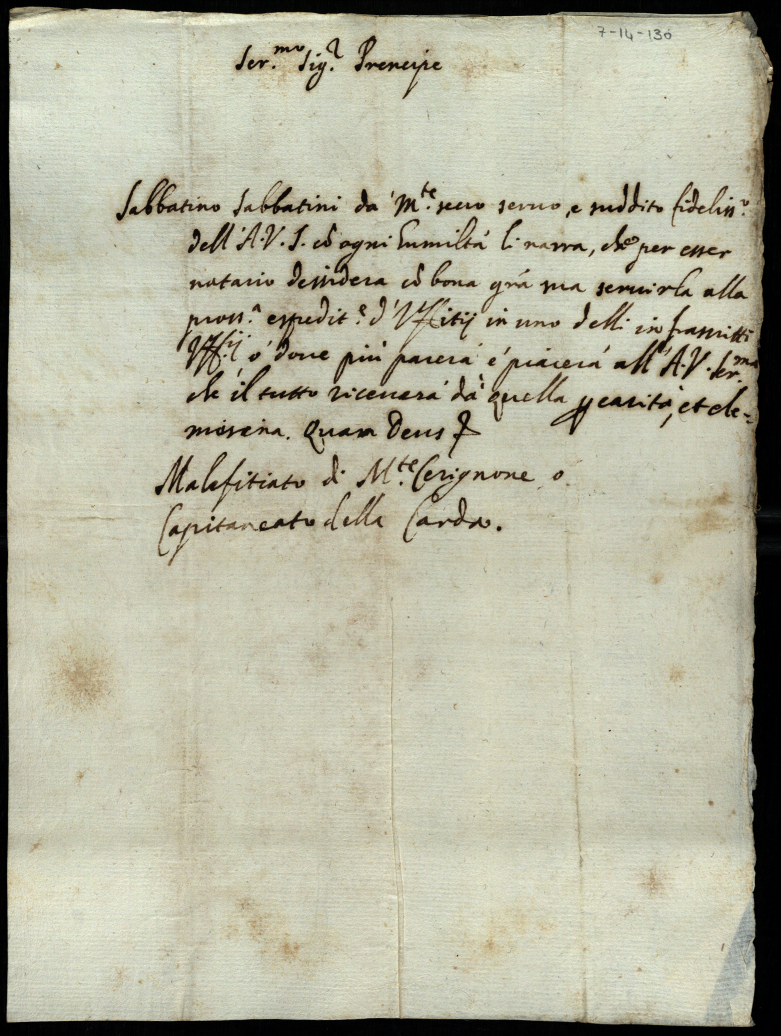 7-14-130
Ser.mo Sig.r Prencipe
Sabbatino Sabbatini da M.te secco servo, e suddito fideliss.o
dell'A.V.S. cõ ogni humiltà li narra, che per esser
notario dessidera cõ bona grã sua servirla alla
pross.a espedit.e d'Uffitij in uno delli infrascritti
Uffij ò dove più parerà e piacerà all'A.V. Ser.ma
che il tutto riceverà dà quella ꝑ carità, et ele-
mosina. Quam Deus
Malefitiato di M.te Cerignone o
Capitaneato della Carda.